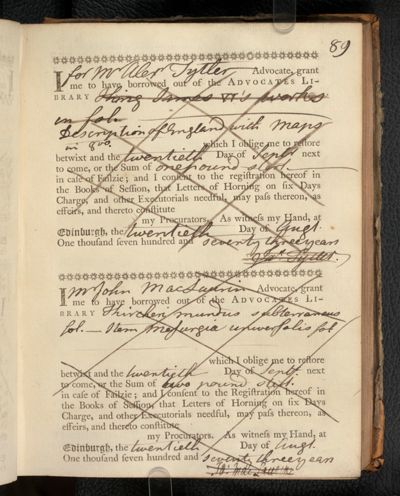 89
I for Mr Alexr Tytler Advocate, grant
me to have borrowed out of the ADVOCATES LI-
BRARY King James VI's works
in fol.
Description of England with maps
in 8vo. which I oblige me to reſtore
betwixt and the twentieth Day of Septr. next
to come, or the Sum of one pound sterl.
in caſe of Failzie; and I conſent to the regiſtration hereof in
the Books of Seſſion, that Letters of Horning on ſix Days
Charge, and other Executorials needful, may paſs thereon, as
effeirs, and thereto conſtitute
my Procurators. As witneſs my Hand, at
Edinburgh, the twentieth Day of Augt.
One thouſand ſeven hundred and seventy three years
Tytler.
I Mr John MacLaurin Advocate, grant
me to have borrowed out of the ADVOCATES LI-
BRARY Kircheri mundus subterraneus
fol. — Item universalis fol
which I oblige me to reſtore
betwixt and the twentieth Day of Septr. next
to come, or the Sum of two pound sterl.
in caſe of Failzie; and I conſent to the Regiſtration hereof in
the Books of Seſſion, that Letters of Horning on ſix Days
Charge, and other Executorials needful, may paſs thereon, as
effeirs, and thereto conſtitute
my Procurators. As witneſs my Hand, at
Edinburgh, the twentieth Day of Augt.
One thouſand ſeven hundred and seventy three years
Jo: MacLaurin